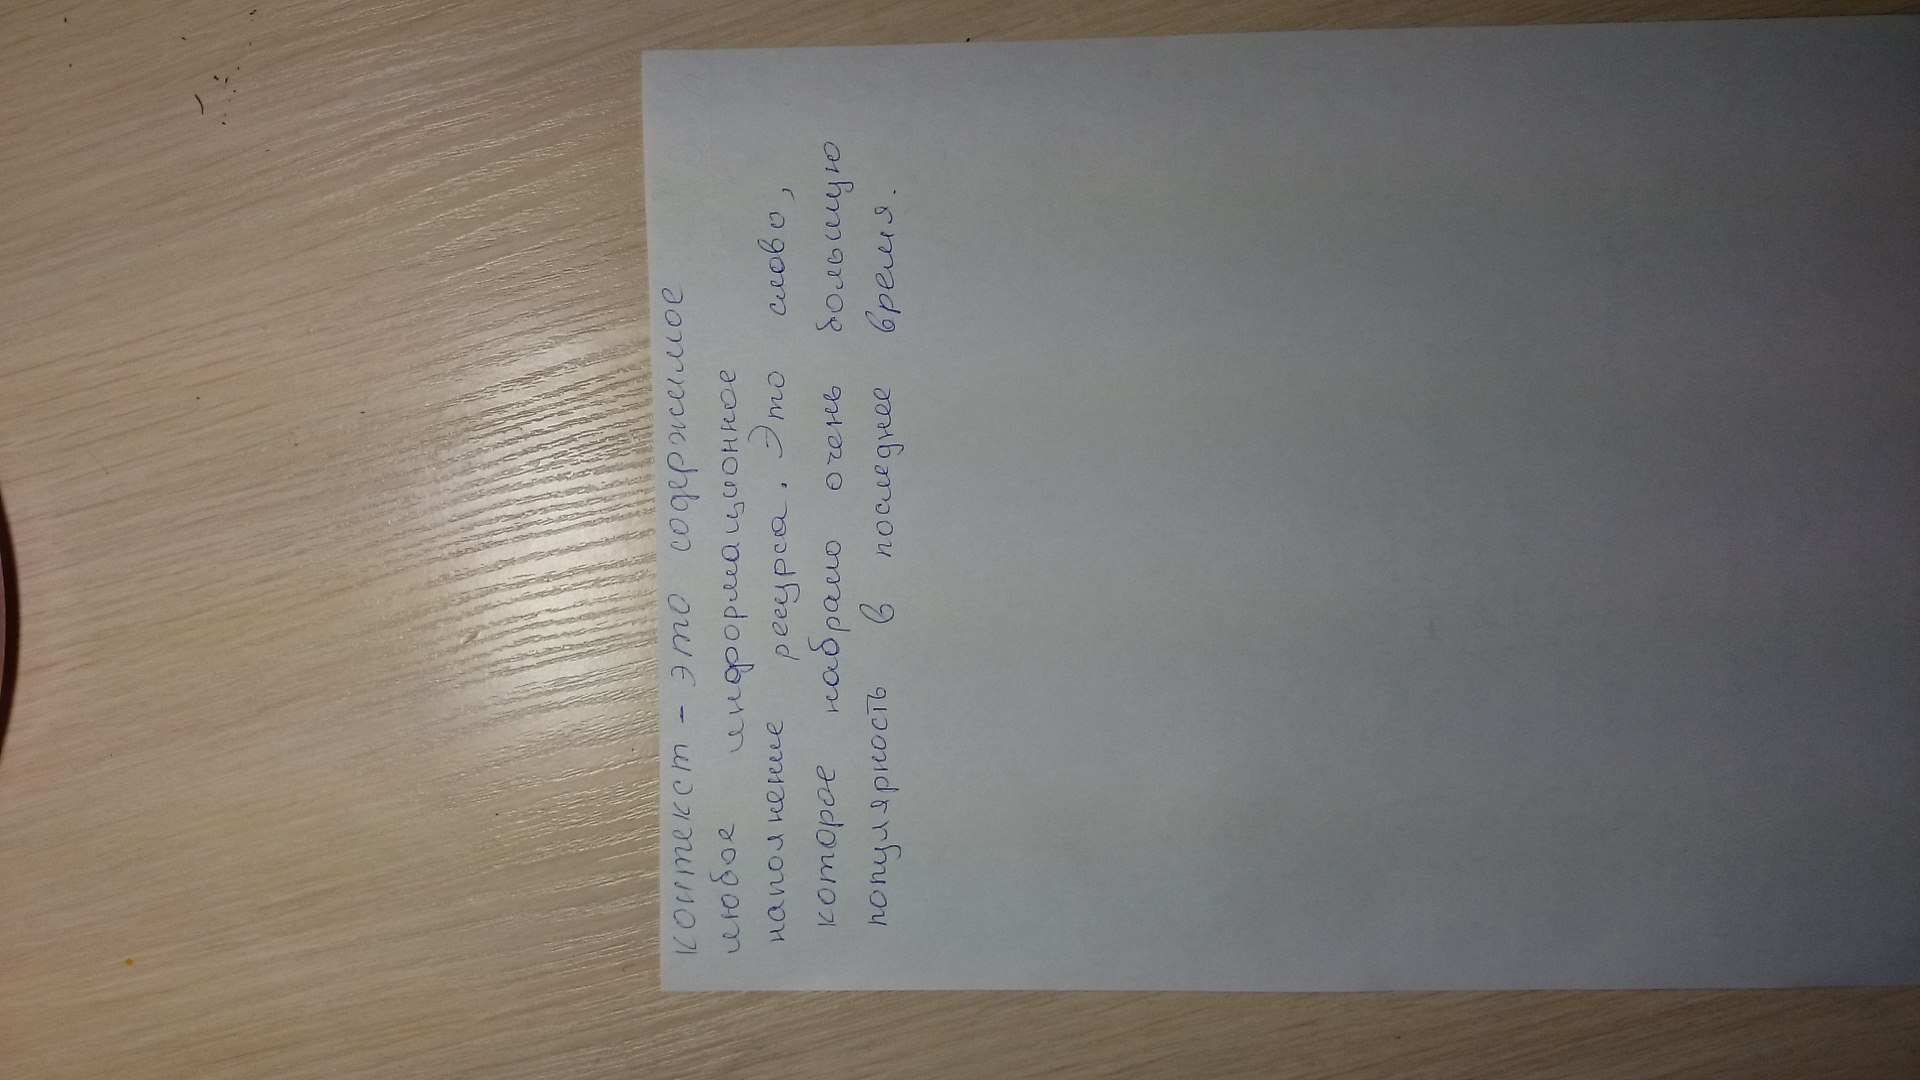 контекст - это содержимое
любое информационное
наполнение ресурса. Это слово,
которое набрало очень большую
популярность в последнее время.